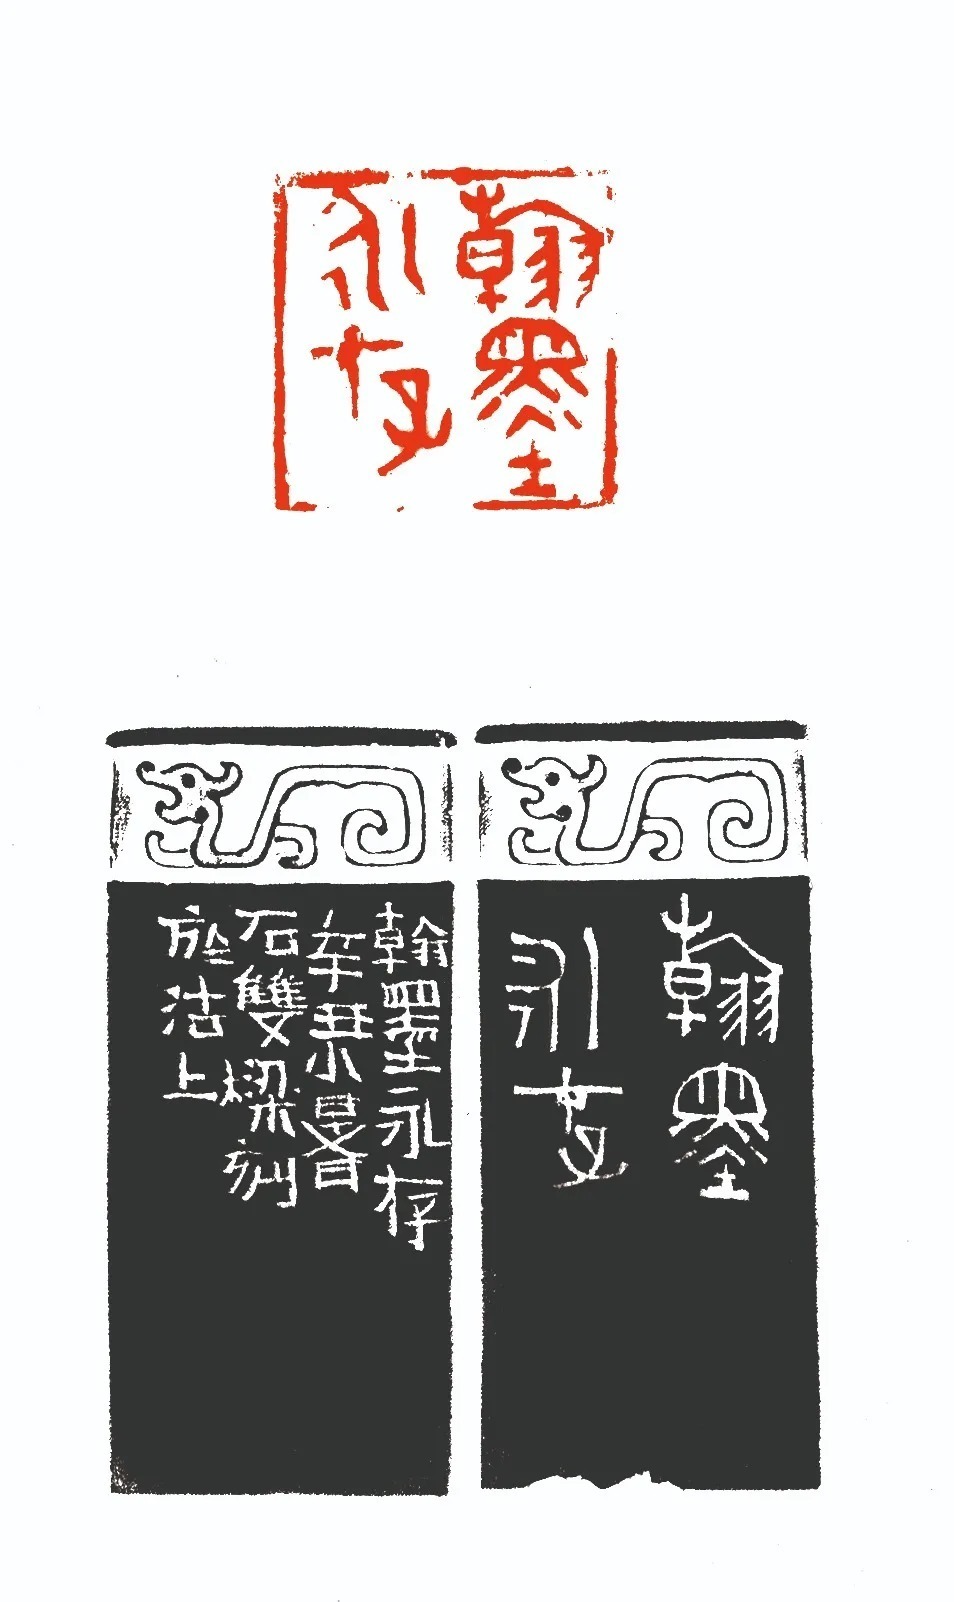 翰墨
永存
翰墨
永存
翰墨永存
辛丑小暑
石雙樑刻
於沽上